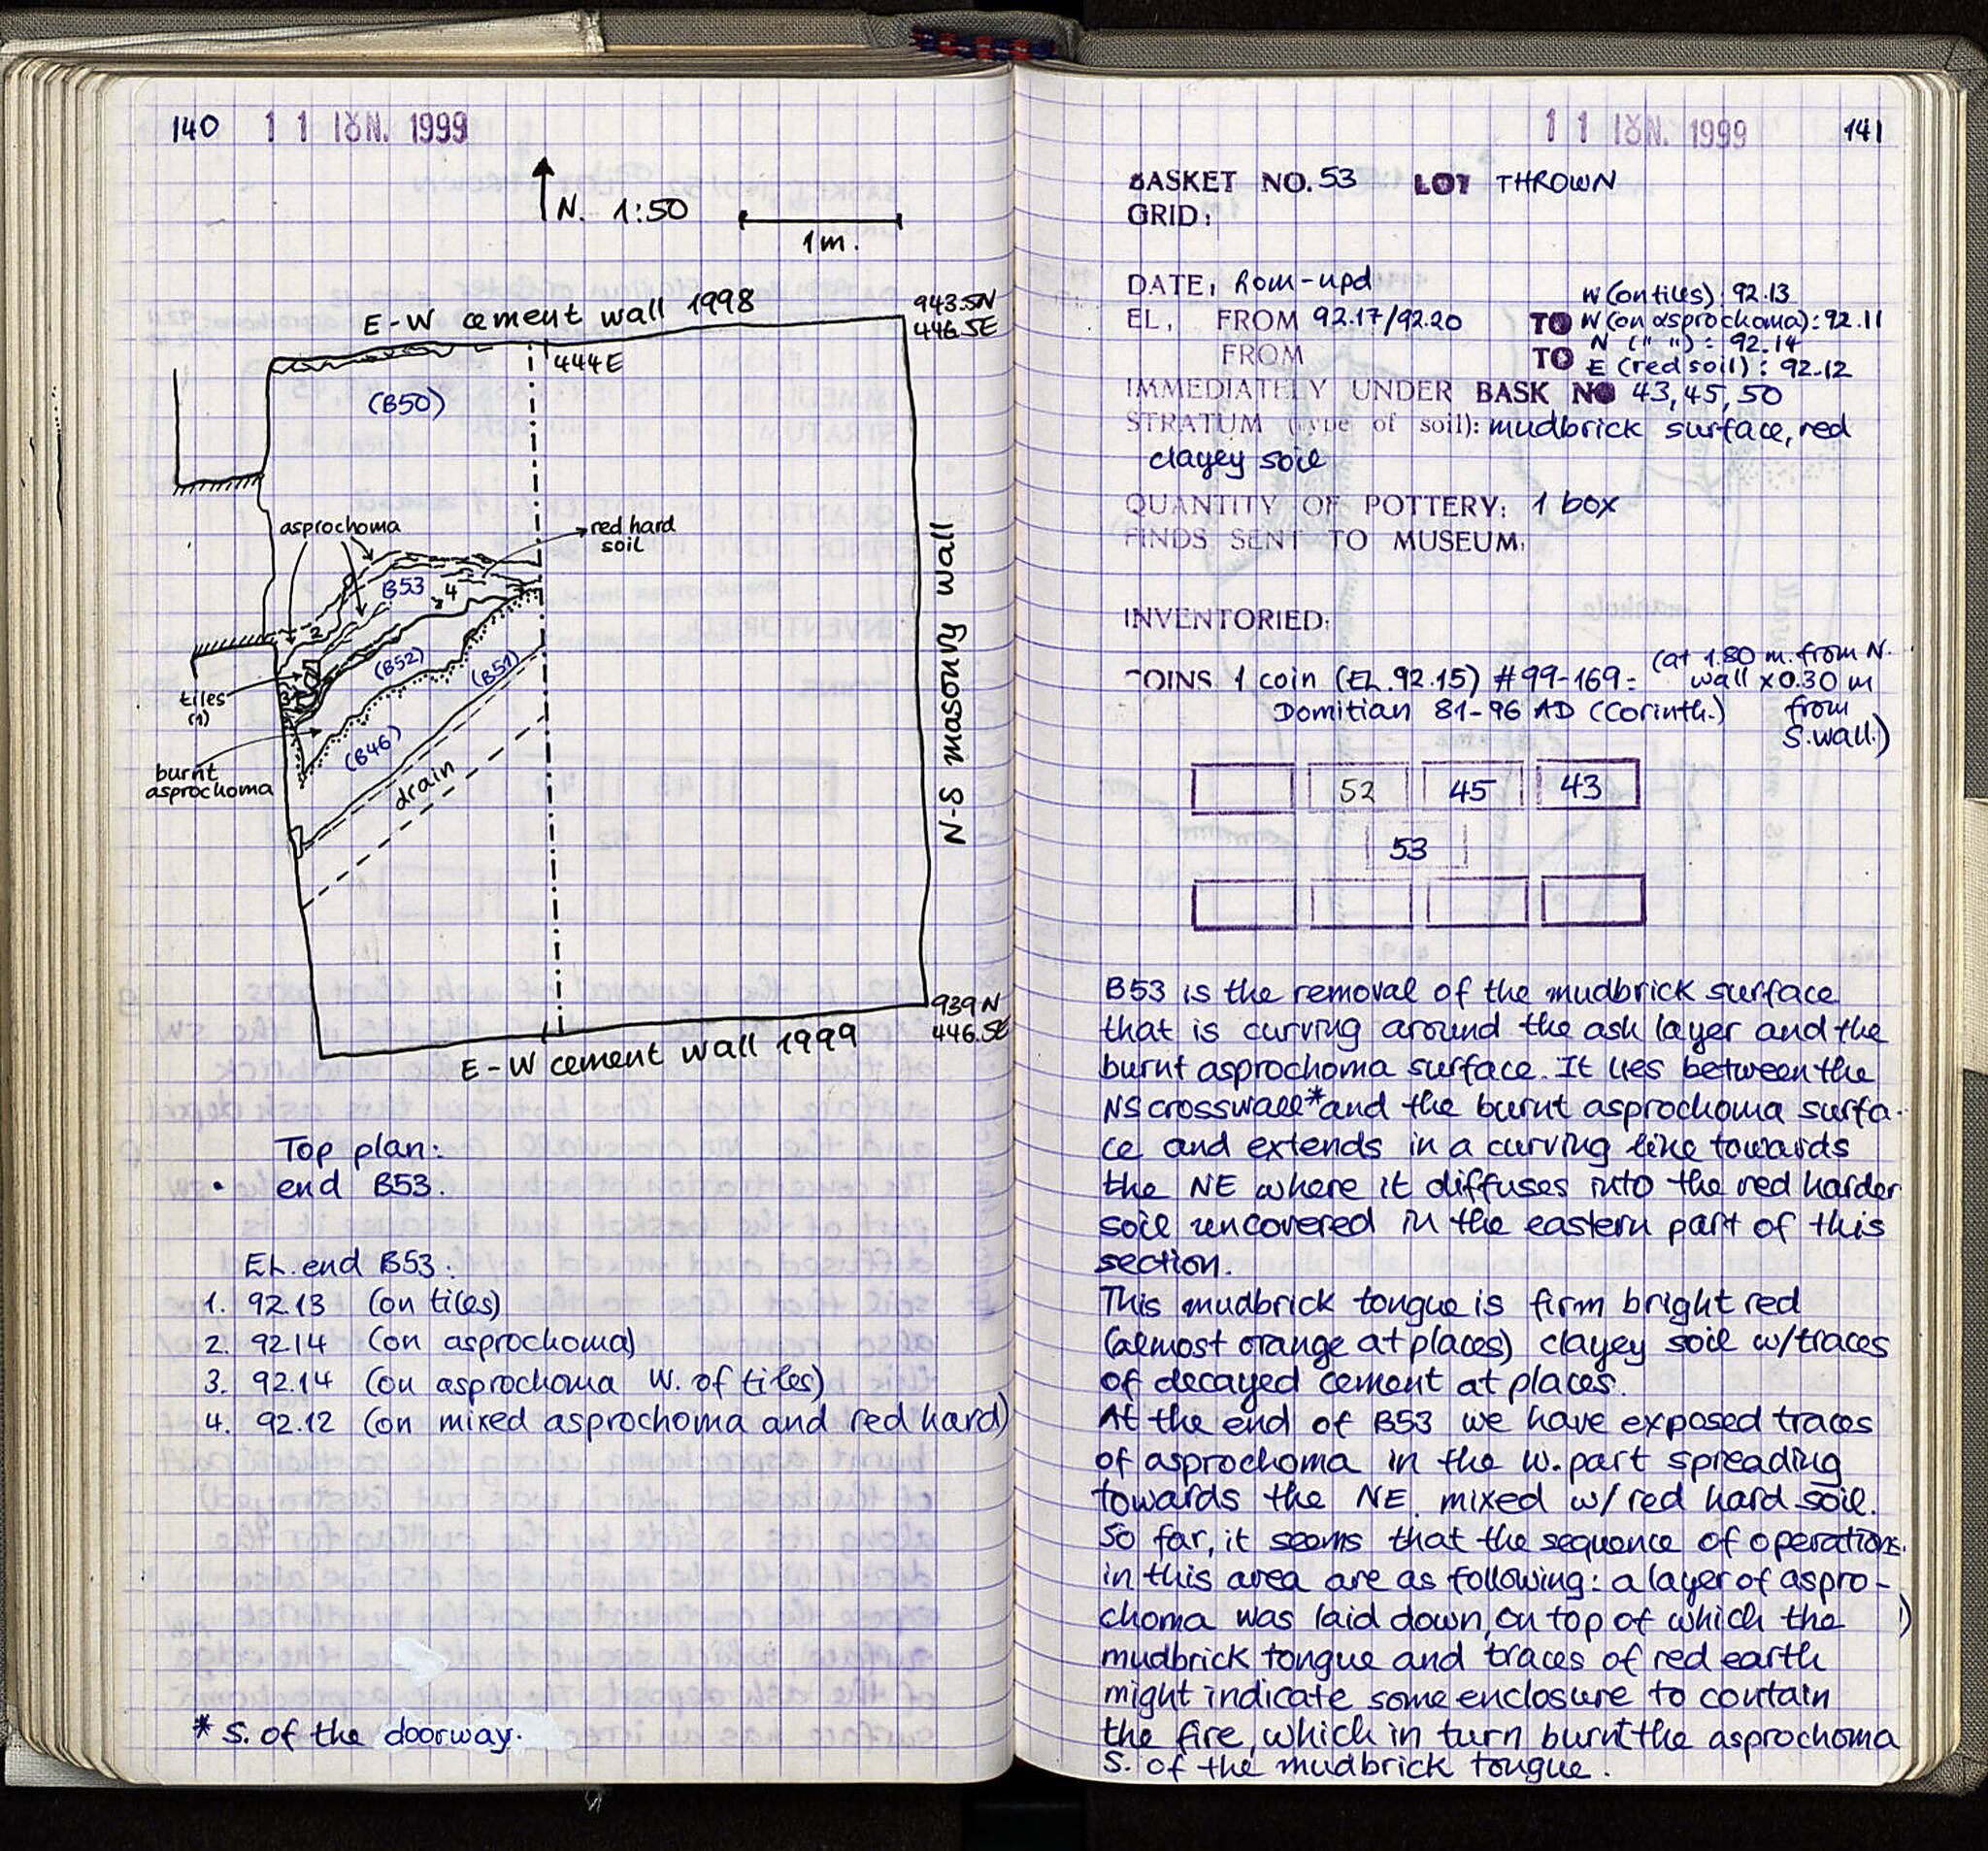 140 11 ΙȣΝ. 1999
N. 1:50
1m.
E-W cement wall 1998
943.5N
446.5E
444E
(B50)
asprochoma
red hard
soil
B53
4
2
(B52)
(B51)
tiles
(1)
3
(B46)
burnt
asprochoma
drain
N-S masonry wall
939N
446.5E
E-W cement wall 1999
Top plan:
end B53.
EL. end B53:
1. 92.13 (on tiles)
2. 92.14 (on asprochoma)
3. 92.14 (on asprochoma W. of tiles)
4. 92.12 (on mixed asprochoma and red hard)
* S. of the doorway.
11 ΙȣΝ. 1999 141
BASKET NO. 53 LOT THROWN
GRID:
DATE: Rom-upd
W (on tiles): 92.13
EL. FROM 92.17/92.20 TO W (on asprochoma): 92.11
N (" "): 92.14
FROM TO E (red soil): 92.12
IMMEDIATELY UNDER BASK NO 43, 45, 50
STRATUM (type of soil): mudbrick surface, red
clayey soil
QUANTITY OF POTTERY: 1 box
FINDS SENT TO MUSEUM:
INVENTORIED:
COINS 1 coin (EL. 92.15) #99-169: (at 1.80 m. from N.
wall x 0.30 m
Domitian 81-96 AD (Corinth.) from
S. wall.)
52 45 43
53
B53 is the removal of the mudbrick surface
that is curving around the ash layer and the
burnt asprochoma surface. It lies between the
NS crosswall* and the burnt asprochoma surfa-
ce and extends in a curving line towards
the NE where it diffuses into the red harder
soil uncovered in the eastern part of this
section.
This mudbrick tongue is firm bright red
(almost orange at places) clayey soil w/traces
of decayed cement at places.
At the end of B53 we have exposed traces
of asprochoma in the w. part spreading
towards the NE. mixed w/ red hard soil.
So far, it seems that the sequence of operations
in this area are as following: a layer of aspro-
choma was laid down, on top of which the
mudbrick tongue and traces of red earth
might indicate some enclosure to contain
the fire, which in turn burnt the asprochoma
S. of the mudbrick tongue.